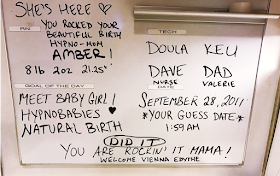 SHE'S HERE ♡
RN
YOU ROCKED YOUR
BEAUTIFUL BIRTH
HYPNO-MOM
AMBER!
8 lb 2oz 21.25"
GOAL OF THE DAY
MEET BABY GIRL!
HYPNOBABIES ♥
NATURAL BIRTH
TECH
DOULA KELI
DAVE DAD
NURSE VALERIE
DATE
SEPTEMBER 28, 2011
*YOUR GUESS DATE*
1:59 AM
DID IT
YOU ARE ROCKIN' IT MAMA!
WELCOME VIENNA EDYTHE